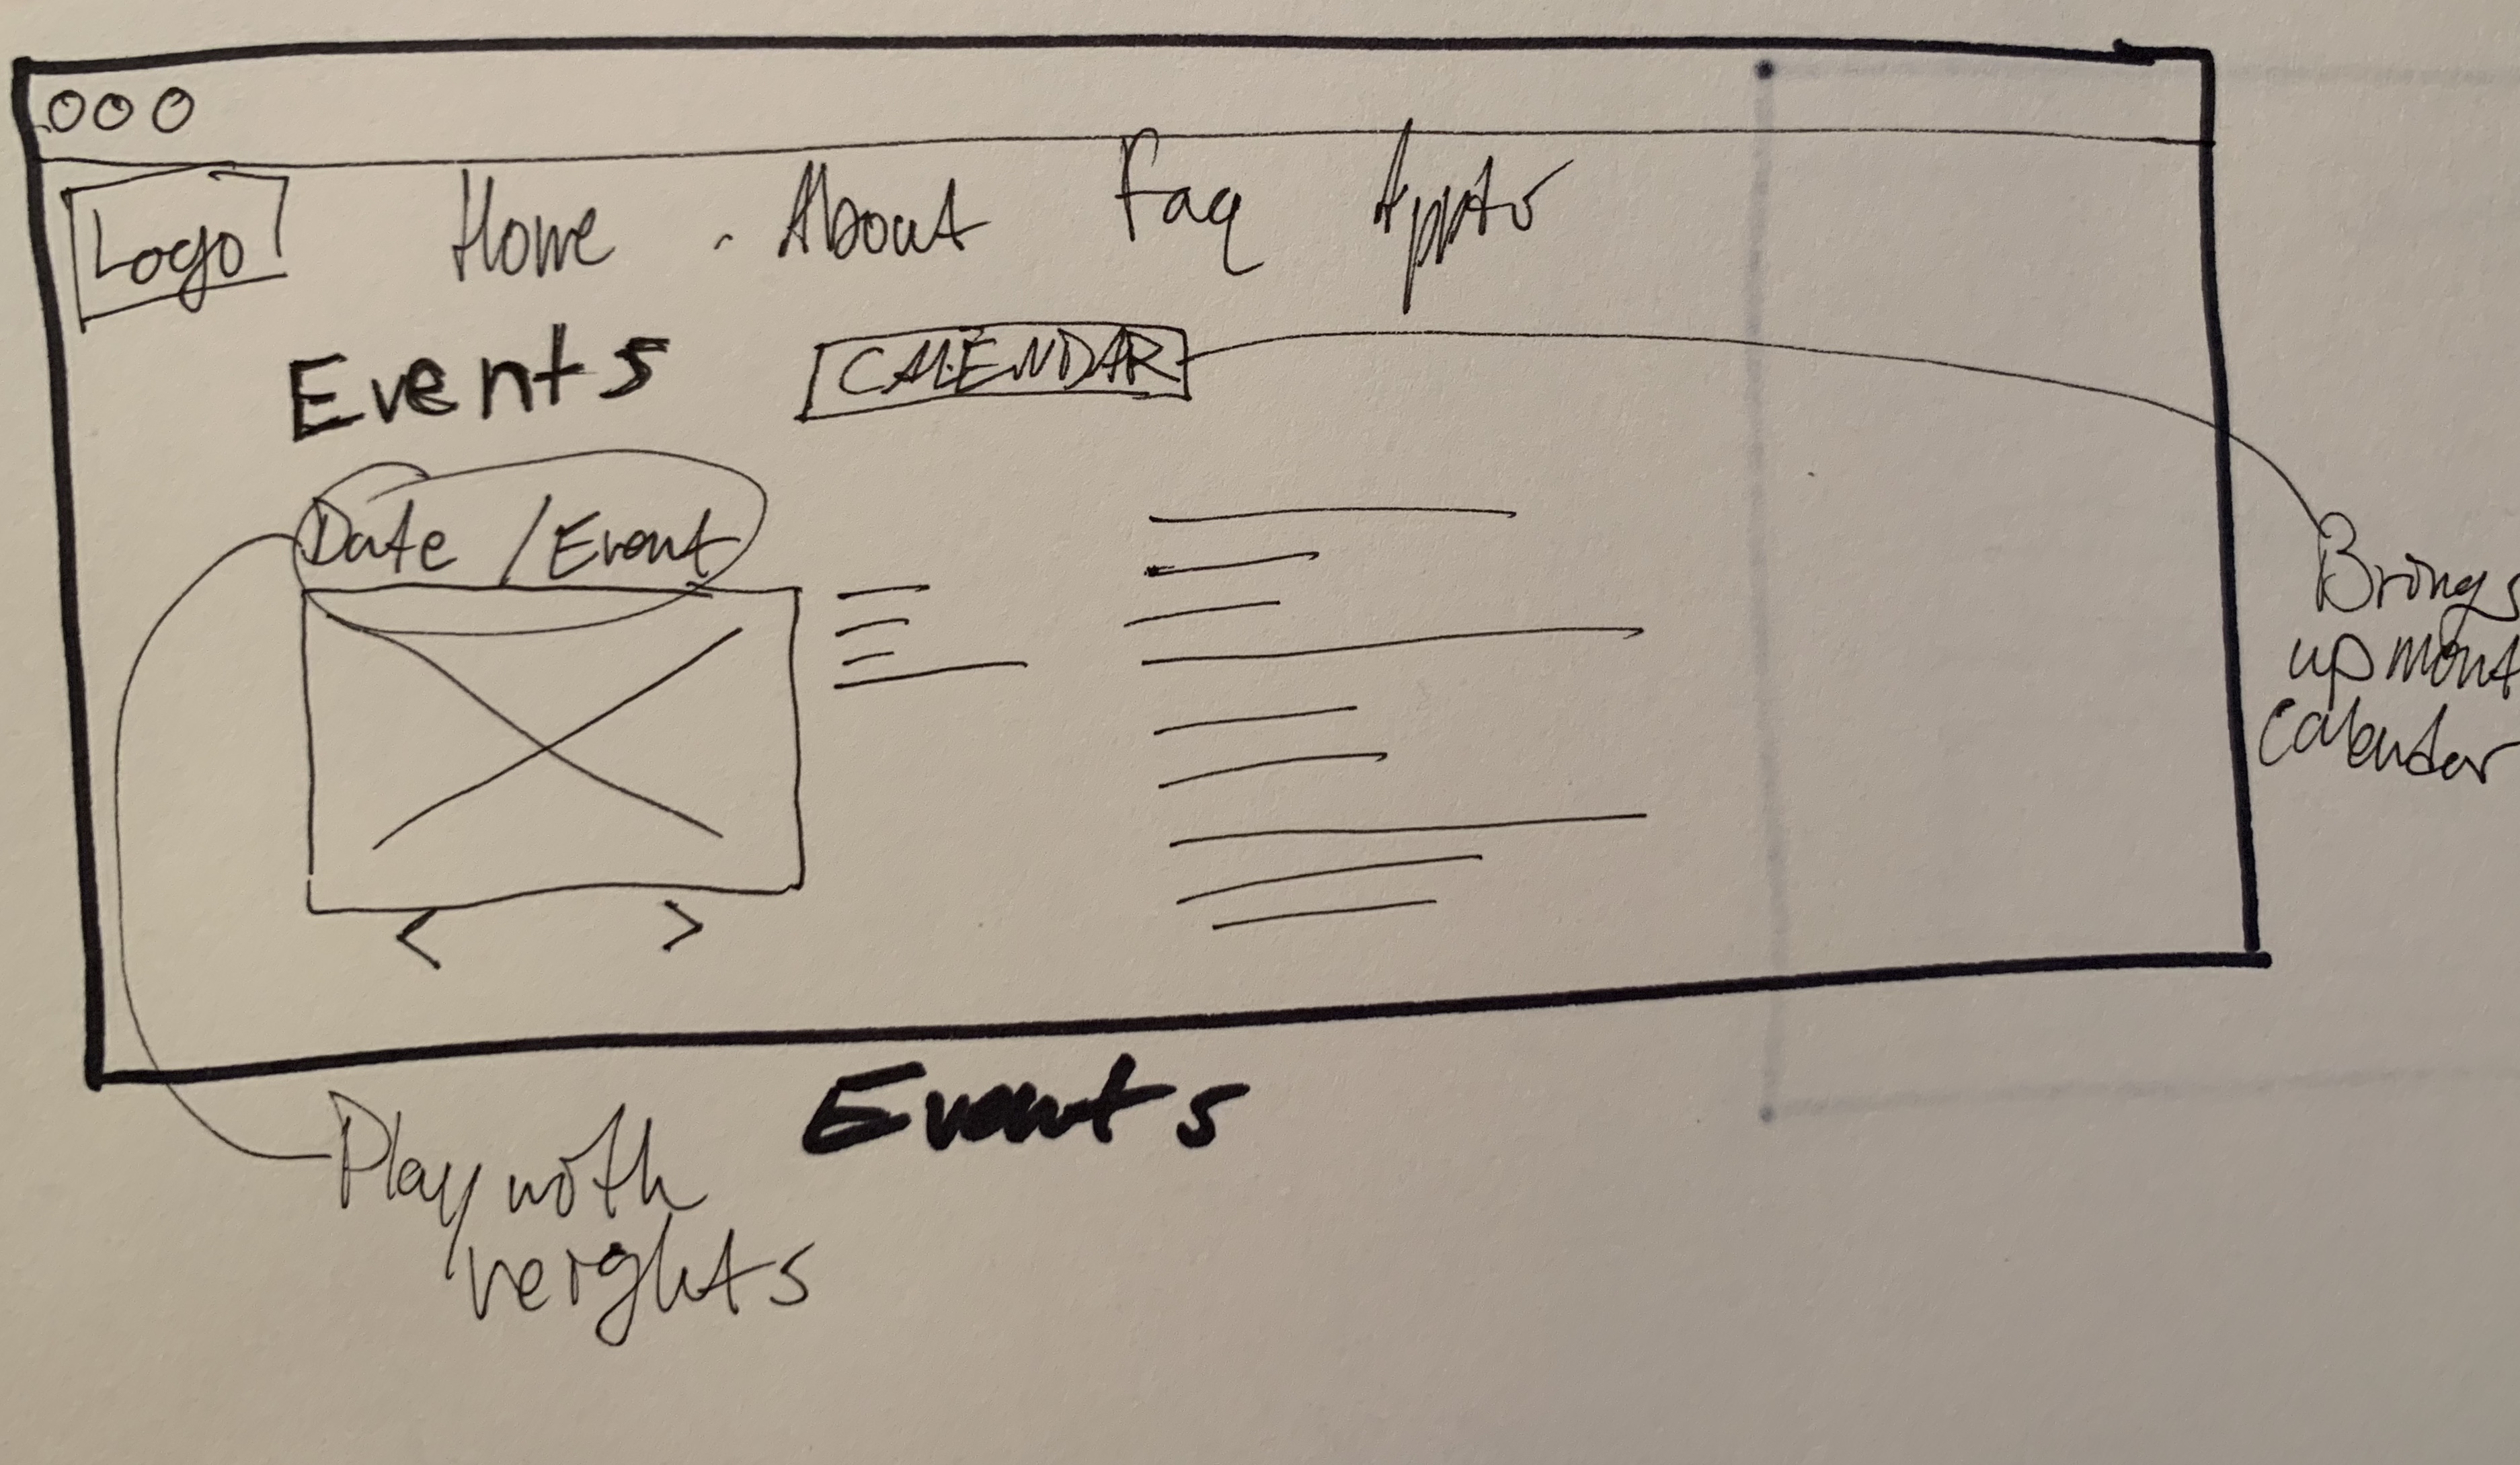 Logo
Home About Faq Appts
Events CALENDAR
Date / Event
< >
Brings
up mont
calendar
Events
Play with
weights